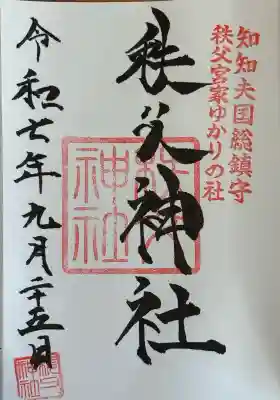 知知夫国総鎮守
秩父宮家ゆかりの社
秩父神社
令和七年九月二十五日
秩父神社